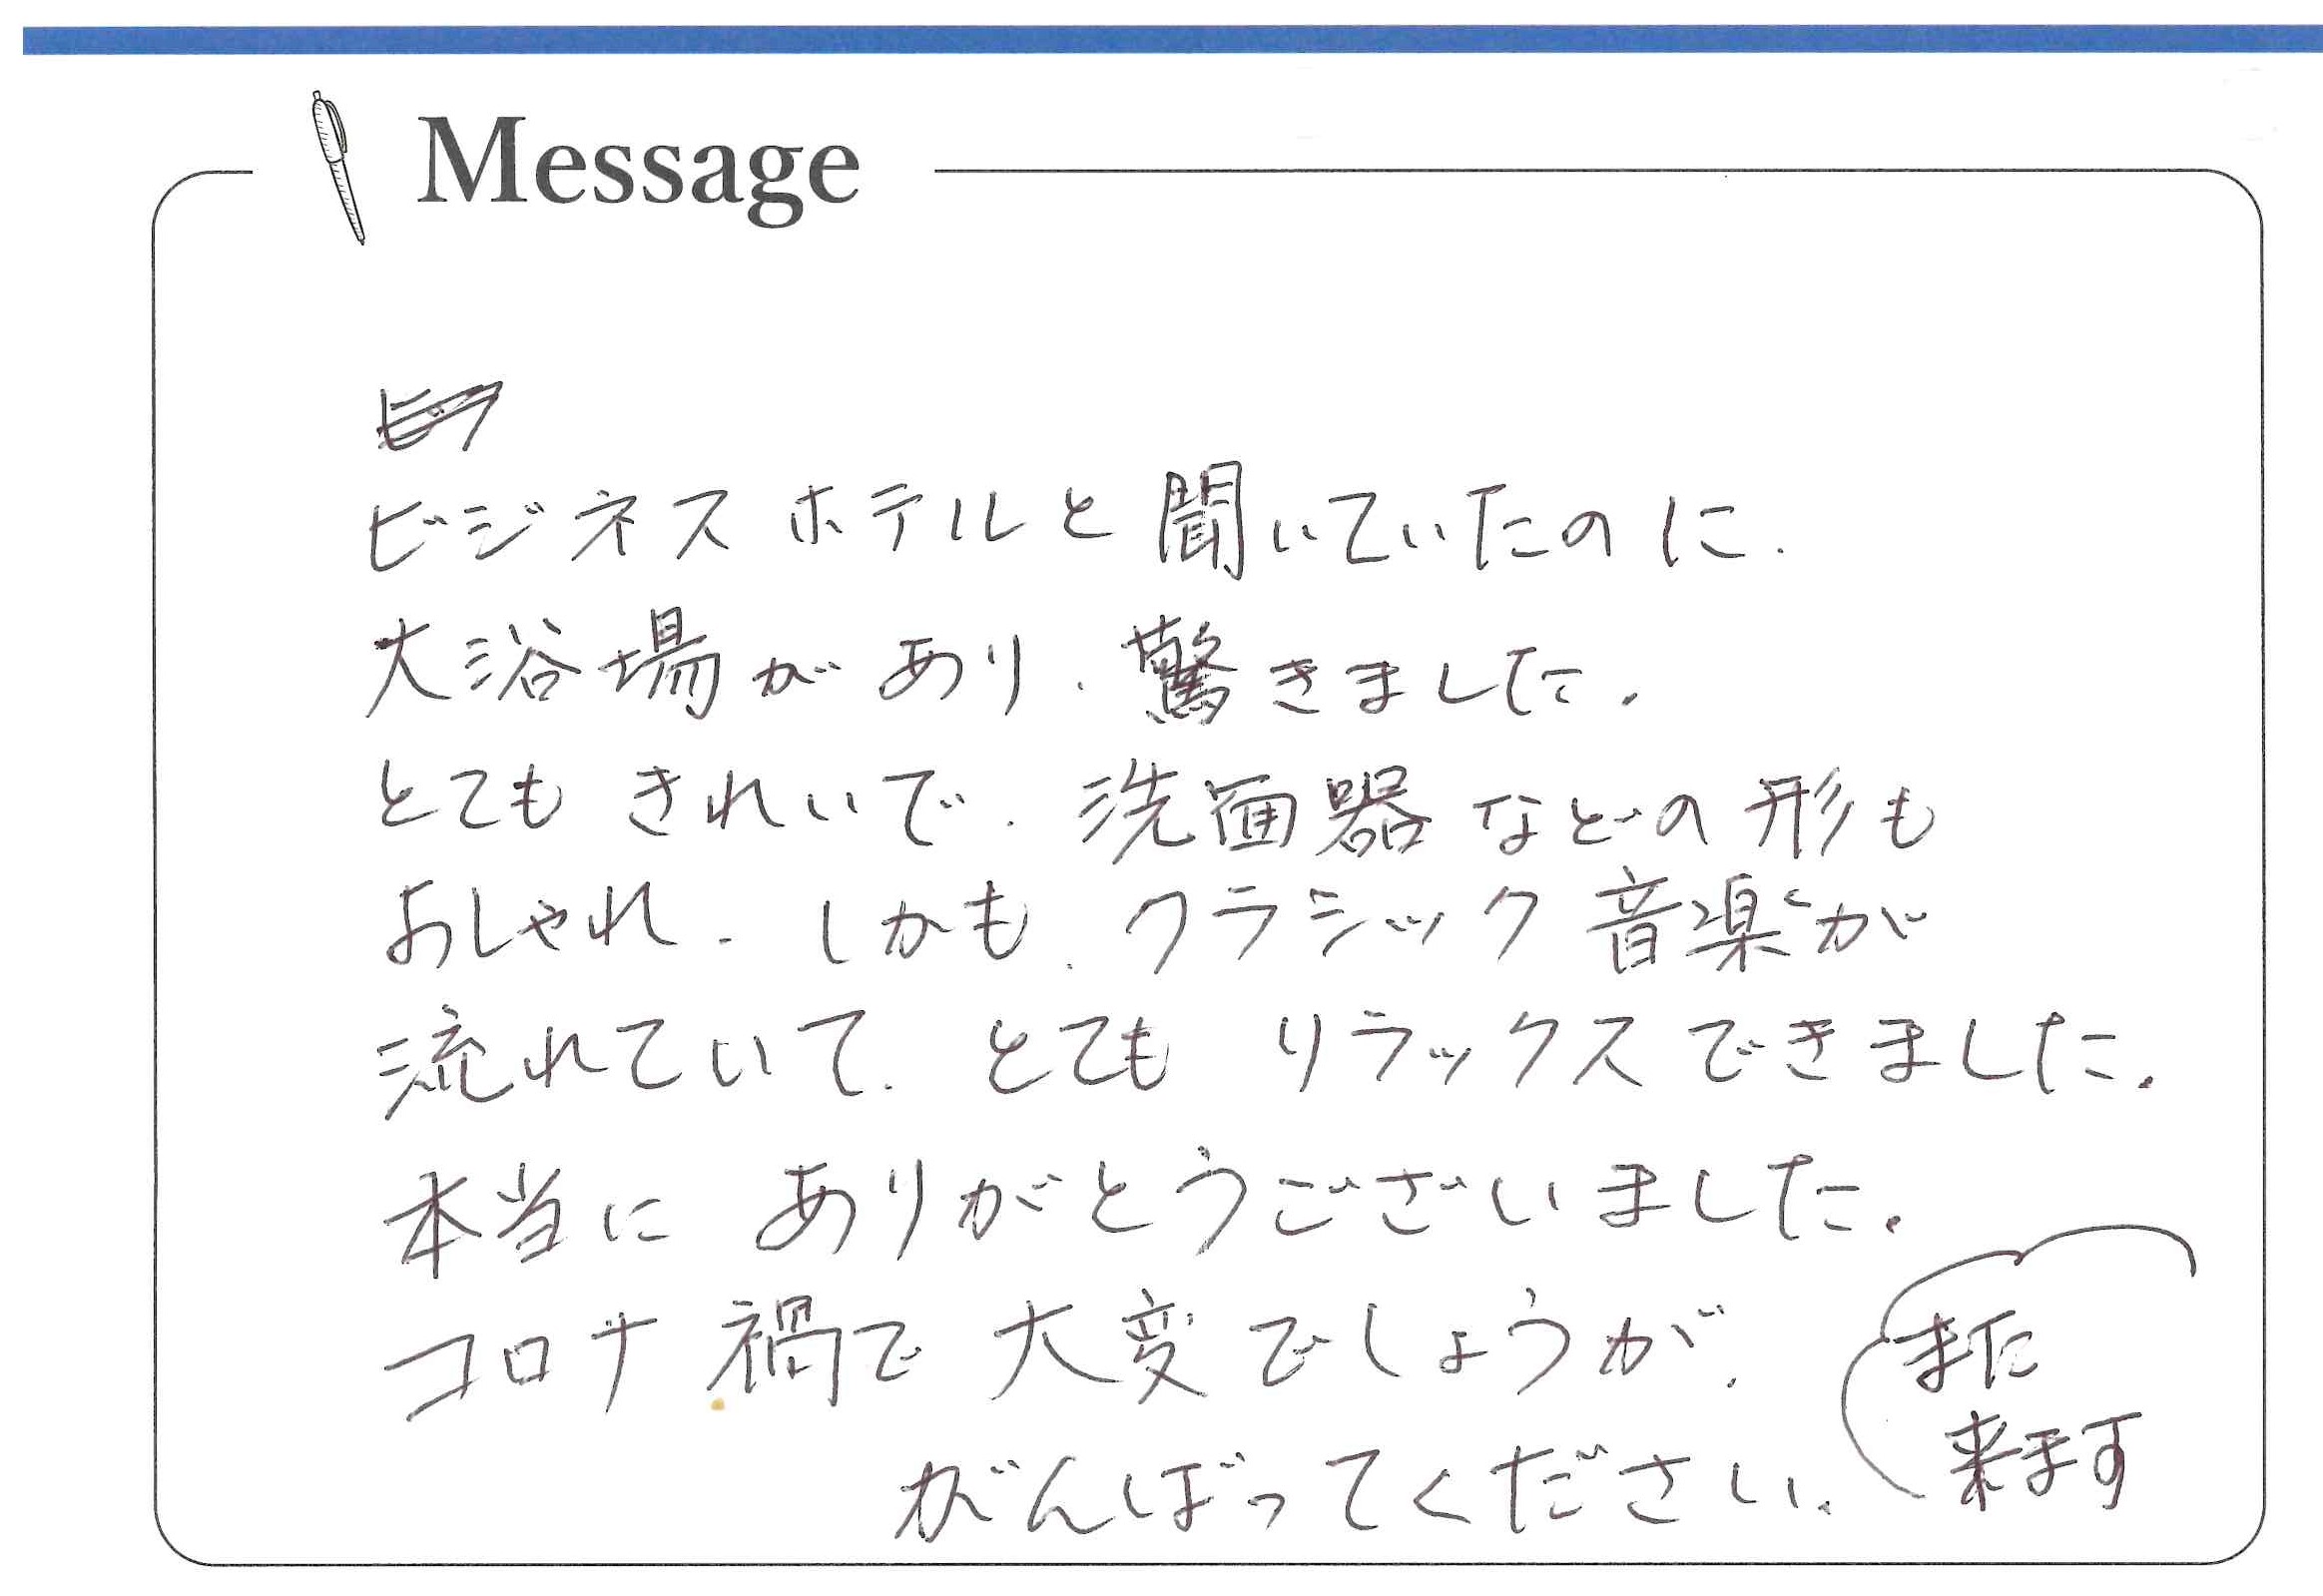 Message
ビジネスホテルと聞いていたのに、
大浴場があり、驚きました。
とてもきれいで、洗面器などの形も
おしゃれ、しかも、クラシック音楽が
流れていて、とてもリラックスできました。
本当にありがとうございました。
コロナ禍で大変でしょうが、
がんばってください。
また
来ます